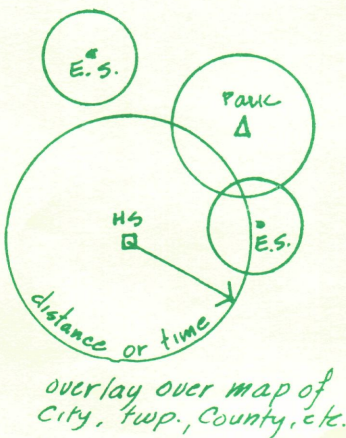 E.S.
Park
HS
E.S.
distance or time
overlay over map of
City, twp., County, etc.